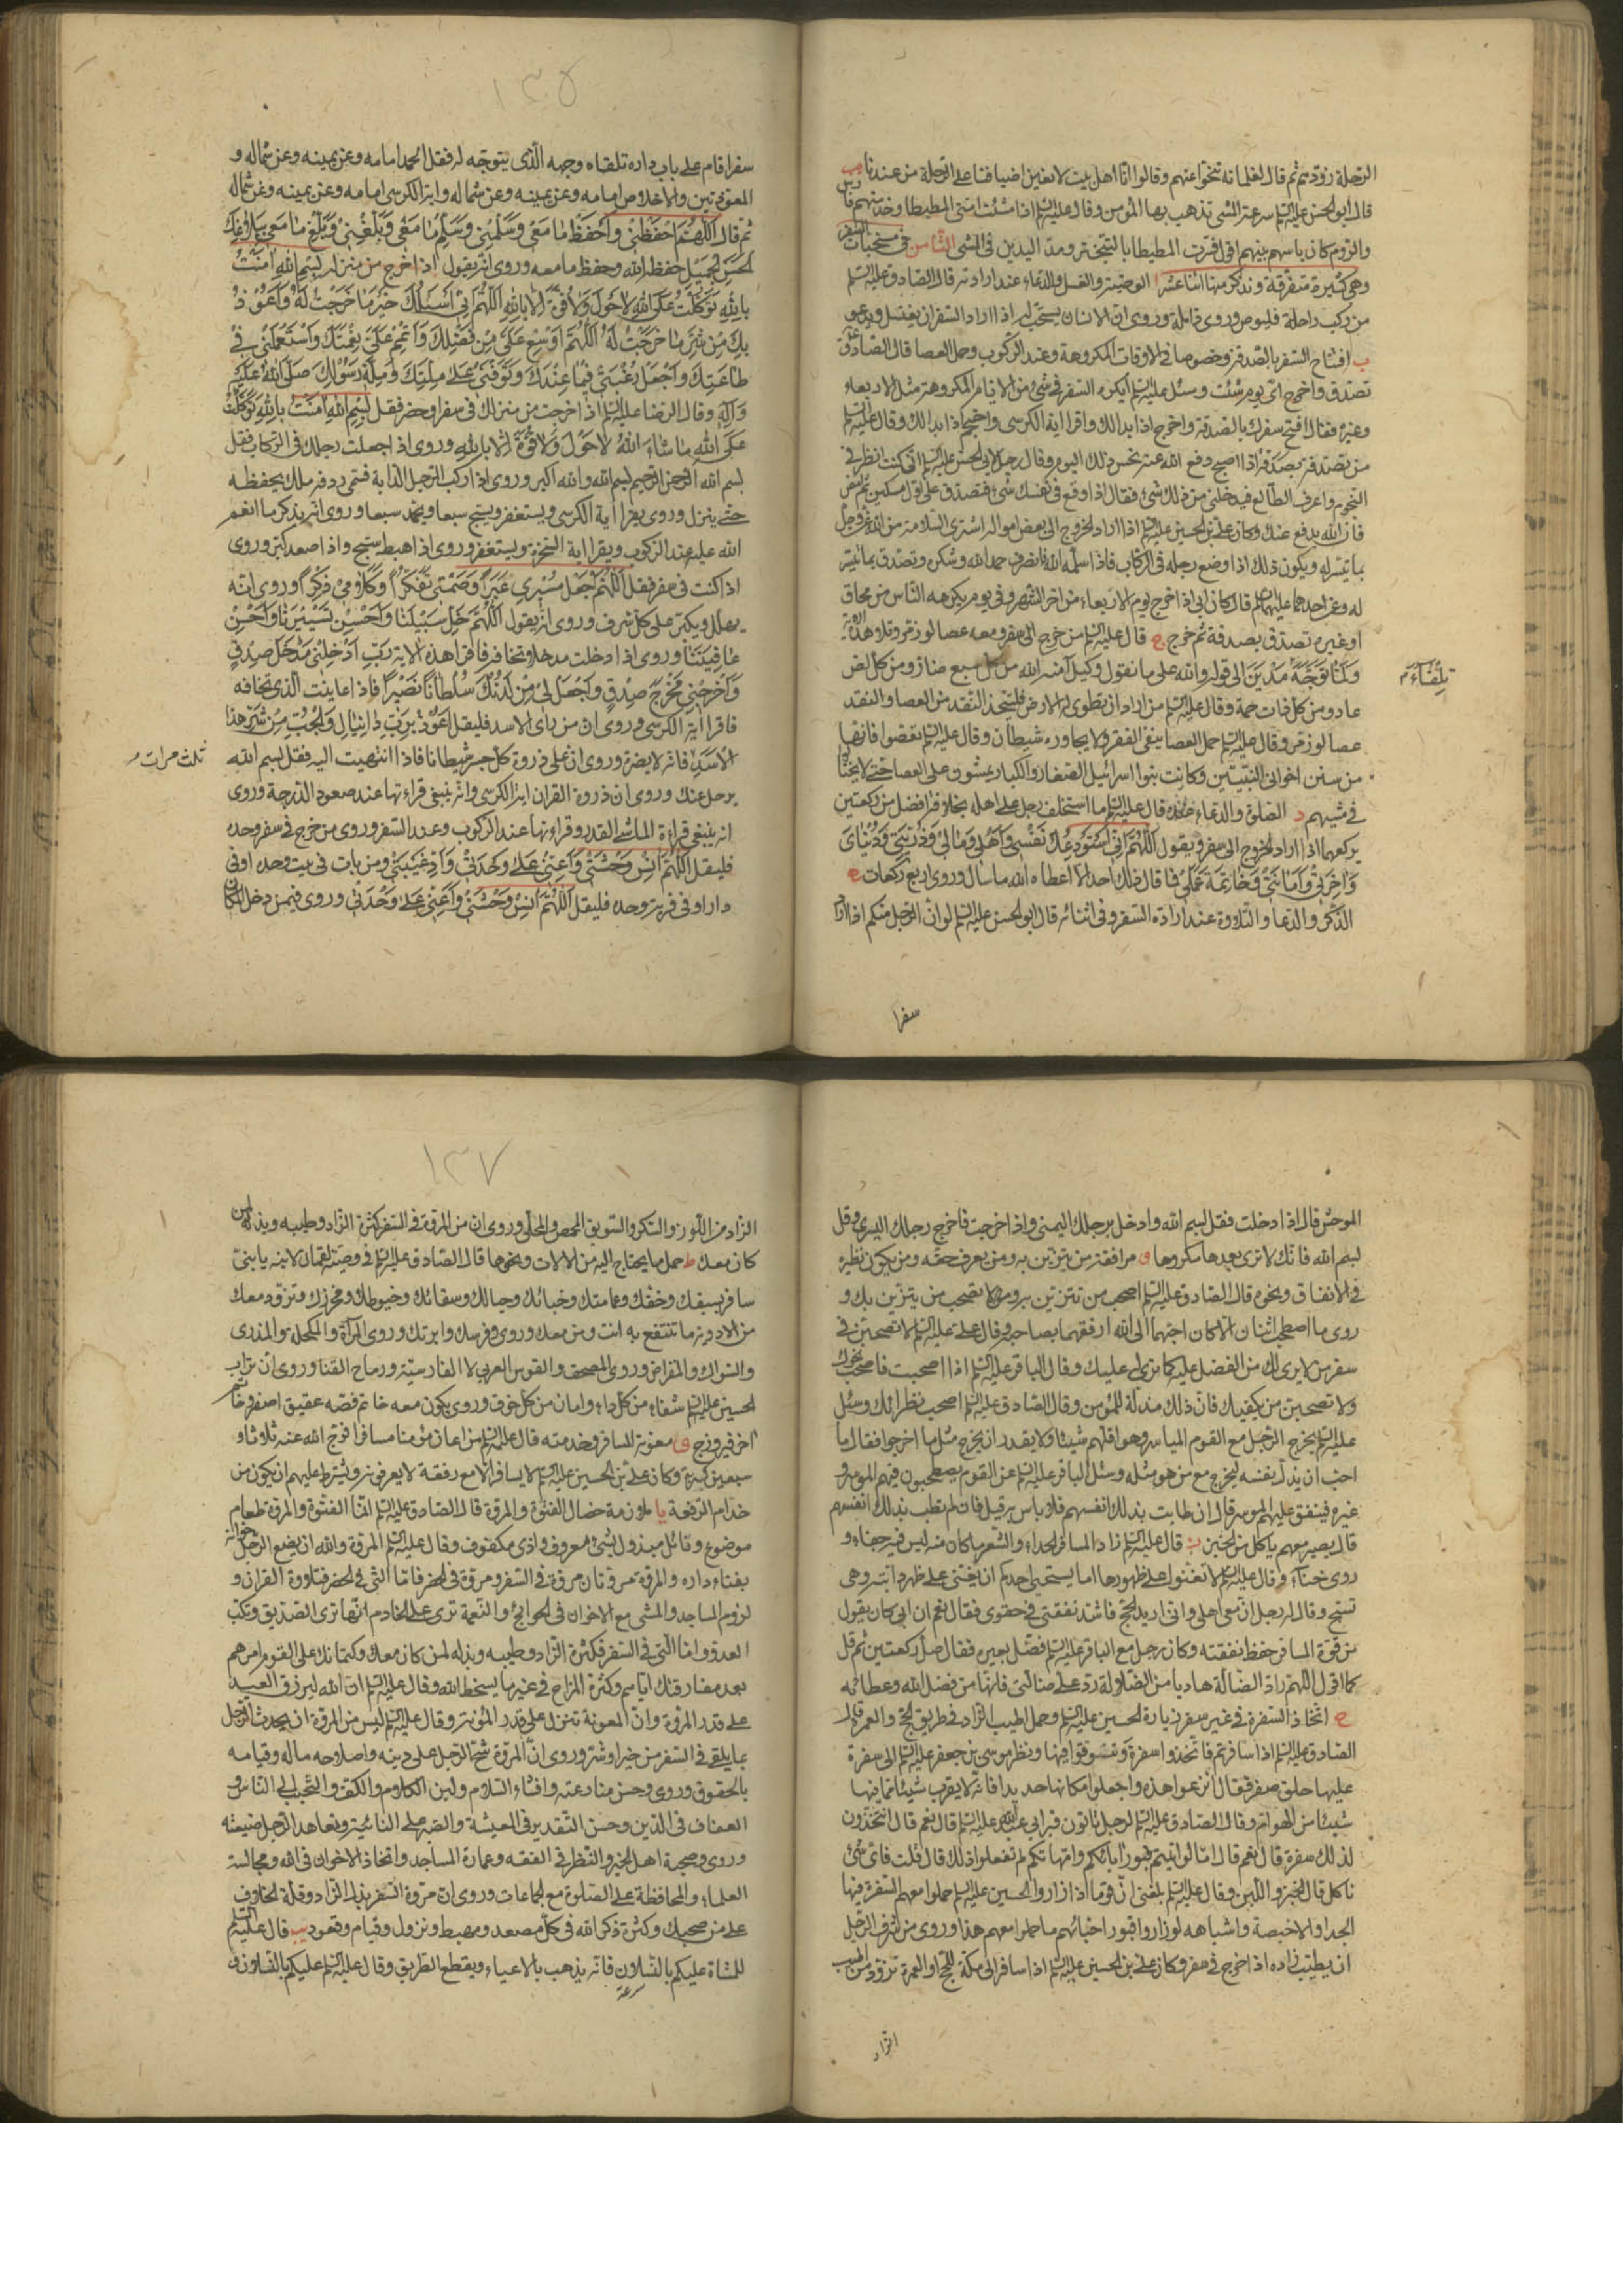 الرحلة زودتهم ثم قال لغلمانه تنحوا عنهم وقالوا انا اهل بيت لا نعين اضيافنا على الرحلة من عندنا
قال ابو الحسن عليه السلم سرعة المشى تذهب ببهاء المؤمن وقال عليه السلم اذا مشت امتى المطيطا وخدمتهم فارس
والروم كان باسهم بينهم اقول فسرت المطيطا بالتبختر ومد اليدين فى المشى الثامن فى مستحبات السفر
وهى كثيرة متفرقة ونذكر منها اثنا عشر ا الوصية والغسل والدعاء عند ارادته قال الصادق عليه السلم
من ركب راحلة فليوص وروى قابلة وروى ان الانسان يستحب له اذا اراد السفر ان يغتسل ويدعو
ب افتتاح السفر بالصدقة وخصوصا فى الاوقات المكروهة وعند الركوب وحمل العصا قال الصادق
تصدق واخرج اى يوم شئت وسئل عليه السلم ايكره السفر فى شئ من الايام المكروهة مثل الاربعاء
وغيره فقال افتح سفرك بالصدقة واخرج اذا بدا لك واقرا اية الكرسى واحتجم اذا بدا لك وقال عليه السلم
من تصدق بصدقة اذا اصبح دفع الله عنه نحس ذلك اليوم وقال رجل لابى الحسن عليه السلم انى كنت انظر فى
النجوم واعرف الطالع فيدخلنى من ذلك شئ فقال اذا وقع فى نفسك شئ فتصدق على اول مسكين ثم امض
فان الله يدفع عنك وكان على بن الحسين عليه السلم اذا اراد الخروج الى بعض امواله اشترى السلامة من الله عز وجل
بما تيسر له ويكون ذلك اذا وضع رجله فى الركاب فاذا سلمه الله فانصرف حمد الله وشكره وتصدق بما تيسر
له وعن احدهما عليهما السلم قال كان ابى اذا خرج يوم الاربعاء من اخر الشهر وفى يوم يكرهه الناس من محاق
او غيره تصدق بصدقة ثم خرج ج قال عليه السلم من خرج الى سفر ومعه عصا لوز مر وتلا هذه الاية
ولما توجه مدين الى قوله والله على ما نقول وكيل آمنه الله من كل سبع ضار ومن كل لص
تلقاء
عاد ومن كل ذات حمة وقال عليه السلم من اراد ان تطوى له الارض فليتخذ النقد من العصا والنقد
عصا لوز مر وقال عليه السلم حمل العصا ينفى الفقر ولا يجاوره شيطان وقال عليه السلم تعصوا فانها
من سنن اخوانى النبيين وكانت بنوا اسرائيل الصغار والكبار يمشون على العصا حتى لا يختالوا
فى مشيهم د الصلوة والدعاء عنده قال عليه السلم ما استخلف رجل على اهله بخلافة افضل من ركعتين
يركعهما اذا اراد الخروج الى سفر ويقول اللهم انى استودعك نفسى واهلى ومالى وذريتى ودنياى
وآخرتى وامانتى وخاتمة عملى فما قال ذلك احد الا اعطاه الله ما سال وروى اربع ركعات ه
الذكر والدعا والتلاوة عند ارادة السفر وفى اثنائه قال ابو الحسن عليه السلم لو ان الرجل منكم اذا اراد
سفرا
١٣٧
سفرا قام على باب داره تلقاه وجهه الذى يتوجه له فقرا الحمد امامه وعن يمينه وعن شماله و
المعوذتين والاخلاص امامه وعن يمينه وعن شماله واية الكرسى امامه وعن يمينه وعن شماله
ثم قال اللهم احفظنى واحفظ ما معى وسلمنى وسلم ما معى وبلغنى وبلغ ما معى ببلاغك
الحسن الجميل لحفظه الله وحفظ ما معه وروى انه يقول اذا خرج من منزله بسم الله آمنت
بالله توكلت على الله لا حول ولا قوة الا بالله اللهم انى اسالك خير ما خرجت له واعوذ
بك من شر ما خرجت له اللهم اوسع على من فضلك واتمم على نعمتك واستعملنى فى
طاعتك واجعل رغبتى فيما عندك وتوفنى على ملتك وملة رسولك صلى الله عليه
وآله وقال الرضا عليه السلم اذا خرجت من منزلك فى سفر او حضر فقل بسم الله آمنت بالله توكلت
على الله ما شاء الله لا حول ولا قوة الا بالله وروى اذا جعلت رجلك فى الركاب فقل
بسم الله الرحمن الرحيم بسم الله والله اكبر وروى اذا ركب الرجل الدابة فسمى ردفه ملك يحفظه
حتى ينزل وروى يقرا اية الكرسى ويستغفر ويسبح سبعا ويحمد سبعا وروى انه يذكر ما انعم
الله عليه عند الركوب ويقرا اية السخرة ويستغفر وروى اذا هبط سبح واذا صعد كبر وروى
اذا كنت فى سفر فقل اللهم اجعل مسيرى عبرا وصمتى تفكرا وكلامى ذكرا وروى انه
يهلل ويكبر على كل شرف وروى انه يقول اللهم خل سبيلنا واحسن تسييرنا واحسن
عافيتنا وروى اذا دخلت مدخلا تخافه فاقرا هذه الاية رب ادخلنى مدخل صدق
واخرجنى مخرج صدق واجعل لى من لدنك سلطانا نصيرا فاذا عاينت الذى تخافه
فاقرا اية الكرسى وروى ان من راى الاسد فليقل اعوذ برب دانيال والجب من شر هذا
الاسد فانه لا يضره وروى ان على ذروة كل جسر شيطانا فاذا انتهيت اليه فقل بسم الله
ثلث مرات
يرحل عنك وروى ان ذروة القران اية الكرسى وانه ينبغى قراءتها عند صعود الدرجة وروى
انه ينبغى قراءة الماشى القدر وقراءتها عند الركوب وعند السفر وروى من خرج فى سفر وحده
فليقل اللهم آنس وحشتى واعنى على وحدتى واد غيبتى ومن بات فى بيت وحده او فى
دار او فى قرية وحده فليقل اللهم آنس وحشتى واعنى على وحدتى وروى فيمن دخل المكان
الموحش قال اذا دخلت فقل بسم الله وادخل برجلك اليمنى واذا خرجت فاخرج رجلك اليسرى وقل
بسم الله فانك لا ترى بعدها مكروها و مرافقة من يتزين به ومن يعرف حقه ومن يكون نظيره
فى الانفاق ونحوه قال الصادق عليه السلم اصحب من تتزين به ولا تصحب من يتزين بك و
روى ما اصطحب اثنان الا كان احبهما الى الله ارفقهما بصاحبه وقال على عليه السلم لا تصحبن فى
سفر من لا يرى لك من الفضل عليه كما ترى له عليك وقال الباقر عليه السلم اذا صحبت فاصحب نحوك
ولا تصحبن من يكفيك فان ذلك مذلة للمؤمن وقال الصادق عليه السلم اصحب نظراءك وسئل
عليه السلم يخرج الرجل مع القوم المياسير وهو اقلهم شيئا ولا يقدر ان يخرج مثل ما اخرجوا فقال ما
احب ان يذل نفسه ليخرج مع من هو مثله وسئل الباقر عليه السلم عن القوم يصطحبون فيهم الموسر و
غيره فينفق عليهم الموسر قال ان طابت بذلك انفسهم فلا باس به قيل فان لم تطب بذلك انفسهم
قال يصير معهم ياكل من الخبز ز قال عليه السلم زاد المسافر الحداء والشعر ما كان منه ليس فيه جفاء و
روى خنا وقال عليه السلم لا تغنوا على ظهورها اما يستحيى احدكم ان يغنى على ظهر دابته وهى
تسبح وقال له رجل ان معى اهلى وانى اريد الحج فاشد نفقتى فى حقوى فقال نعم ان ابى كان يقول
من قوة المسافر حفظ نفقته وكان رجل مع الباقر عليه السلم فضل بعيره فقال صل ركعتين ثم قل
كما اقول اللهم راد الضالة هاديا من الضلالة رد على ضالتى فانها من فضل الله وعطائه
ح اتخاذ السفرة فى غير سفر زيارة الحسين عليه السلم وحمل اطيب الزاد فى طريق الحج والعمرة قال
الصادق عليه السلم اذا سافرتم فاتخذوا سفرة وتنوقوا فيها ونظر موسى بن جعفر عليه السلم الى سفرة
عليها حلق صفر فقال انزعوا هذه واجعلوا مكانها حديدا فانه لا يقرب شيئا مما فيها
شيئا من الهوام وقال الصادق عليه السلم لرجل تاتون قبر ابى عبد الله عليه السلم قال نعم قال تتخذون
لذلك سفرة قال نعم قال اما لو اتيتم قبور ابائكم وامهاتكم لم تفعلوا ذلك قال قلت فاى شئ
ناكل قال الخبز واللبن وقال عليه السلم بلغنى ان قوما اذا زاروا الحسين عليه السلم حملوا معهم السفرة فيها
الجداء والاخبصة واشباهه لو زاروا قبور احبائهم ما حملوا معهم هذا وروى من شرف الرجل
ان يطيب زاده اذا خرج فى سفر وكان على بن الحسين عليه السلم اذا سافر الى مكة للحج او العمرة تزود من اطيب
الزاد
١٣٧
الزاد من اللوز والسكر والسويق المحمص والمحلى وروى ان من المروة فى السفر كثرة الزاد وطيبه وبذله لمن
كان معك ط حمل ما يحتاج اليه من الالات ونحوها قال الصادق عليه السلم فى وصية لقمان لابنه يا بنى
سافر بسيفك وخفك وعمامتك وخبائك وحبالك وسقائك وخيوطك ومخرزك وتزود معك
من الادوية ما تنتفع به انت ومن معك وروى وفرسك وابرتك وروى المرآة والمكحلة والمذرى
والسواك والمقراض وروى المصحف والقوس العربى لا الفارسية ورماح القنا وروى ان تراب
الحسين عليه السلم شفاء من كل داء وامان من كل خوف وروى يكون معه خاتم فصه عقيق اصفر وخاتم
اخر فيروزج ى معونة المسافر وخدمته قال عليه السلم من اعان مؤمنا مسافرا فرج الله عنه ثلاثا و
سبعين كربة وكان على بن الحسين عليه السلم لا يسافر الا مع رفقة لا يعرفونه ويشترط عليهم ان يكون من
خدام الرفقة يا ملازمة خصال الفتوة والمروة قال الصادق عليه السلم انما الفتوة والمروة طعام
موضوع ونائل مبذول لشئ معروف واذى مكفوف وقال عليه السلم المروة والله ان يضع الرجل خوانه
بفناء داره والمروة مروتان مروة فى السفر ومروة فى الحضر فاما التى فى الحضر فتلاوة القران و
لزوم المساجد والمشى مع الاخوان فى الحوائج والنعمة ترى على الخادم انها تسر الصديق وتكبت
العدو واما التى فى السفر فكثرة الزاد وطيبه وبذله لمن كان معك وكتمانك على القوم امرهم
بعد مفارقتك اياهم وكثرة المزاح فى غير ما يسخط الله وقال عليه السلم ان الله ليرزق العبد
على قدر المروة وان المعونة تنزل على قدر المؤنة وقال عليه السلم ليس من المروة ان يحدث الرجل
بما يلقى فى السفر من خير او شر وروى ان المروة شح الرجل على دينه واصلاحه ماله وقيامه
بالحقوق وروى وحسن منازعته وافشاء السلام ولين الكلام والكف والتحبب الى الناس و
العفاف فى الدين وحسن التقدير فى المعيشة والصبر على النائبة وتعاهد الرجل ضيعته
وروى وصحبة اهل الخير والنظر فى الفقه وعمارة المساجد واتخاذ الاخوان فى الله ومجالسة
العلماء والمحافظة على الصلوة مع الجماعات وروى ان مروة السفر بذل الزاد وقلة الخلاف
على من صحبك وكثرة ذكر الله فى كل مصعد ومهبط ونزول وقيام وقعود يب قال عليه السلم
للمشاة عليكم بالنسلان فانه يذهب بالاعياء ويقطع الطريق وقال عليه السلم عليكم بالنسلان و
سرعة